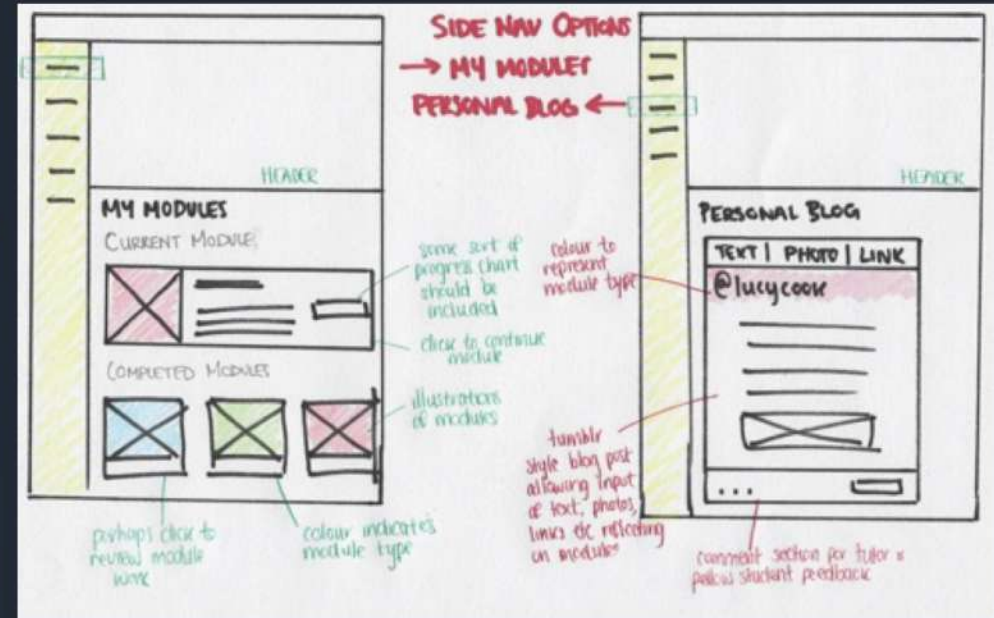 SIDE NAV OPTIONS
→ MY MODULES
PERSONAL BLOG ←
HEADER
MY MODULES
CURRENT MODULE
some sort of
progress chart
should be
included
click to continue
module
COMPLETED MODULES
illustrations
of modules
perhaps click to
review module
work
colour indicates
module type
HEADER
PERSONAL BLOG
TEXT | PHOTO | LINK
@lucycook
colour to
represent
module type
tumblr
style blog post
allowing input
of text, photos,
links etc reflecting
on modules
...
comment section for tutor &
fellow student feedback